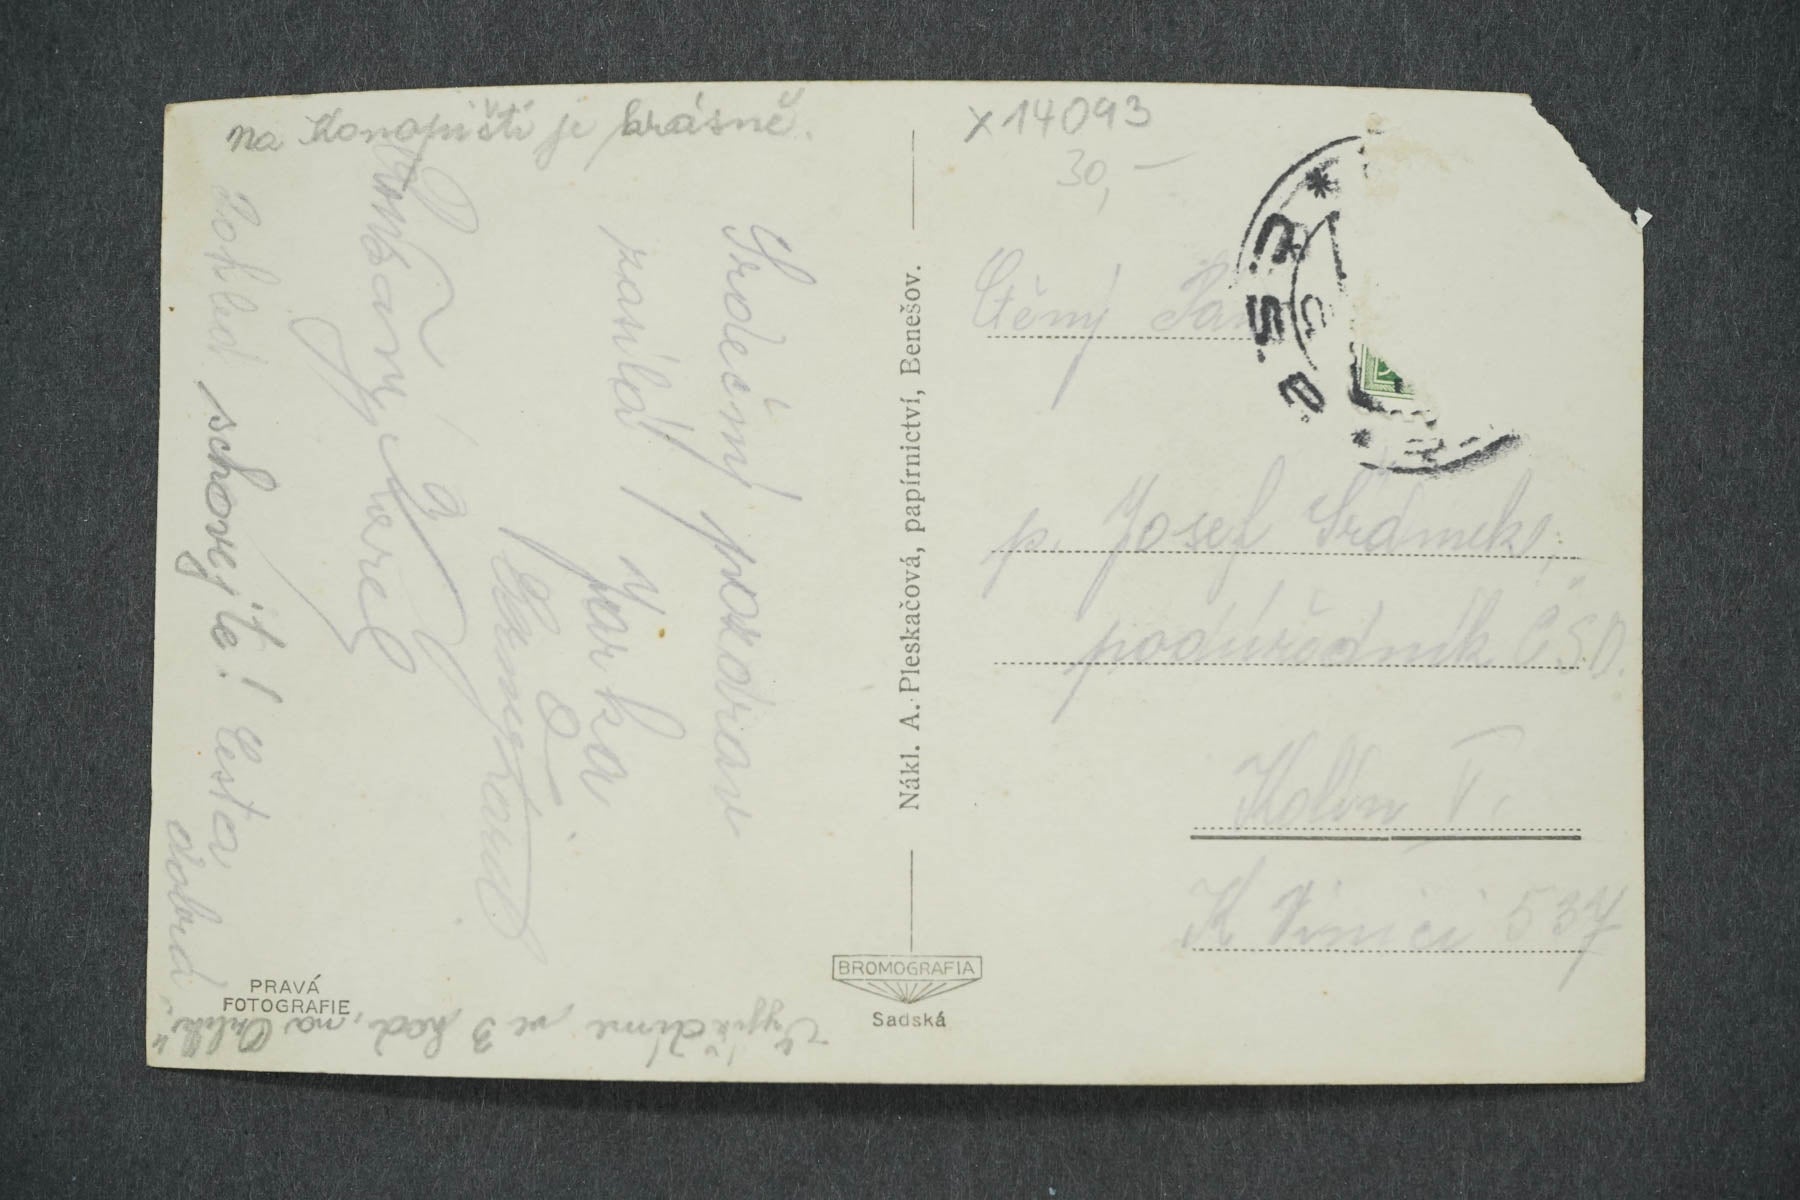 Na Konopišti je krásně.
Srdečný pozdrav
zasílá Jarka
a
Pohled schovejte! Cesta
dobrá.
Vyjíždíme ve 3 hod. na Orlík"
Nákl. A. Pleskačová, papírnictví, Benešov.
PRAVÁ
FOTOGRAFIE
BROMOGRAFIA
Sadská
x 14093
30,-
Ctěný Pan
p. Josef
podúředník ČSD.
Kolín V.
K Vinici 537